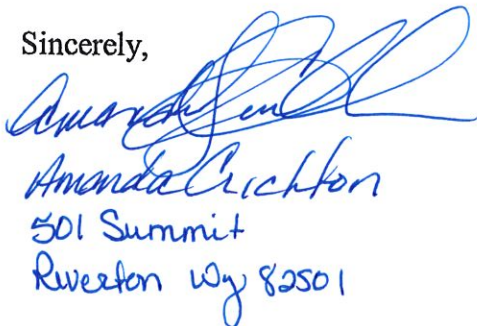 Sincerely,
Amanda
Amanda Crichton
501 Summit
Riverton Wy 82501